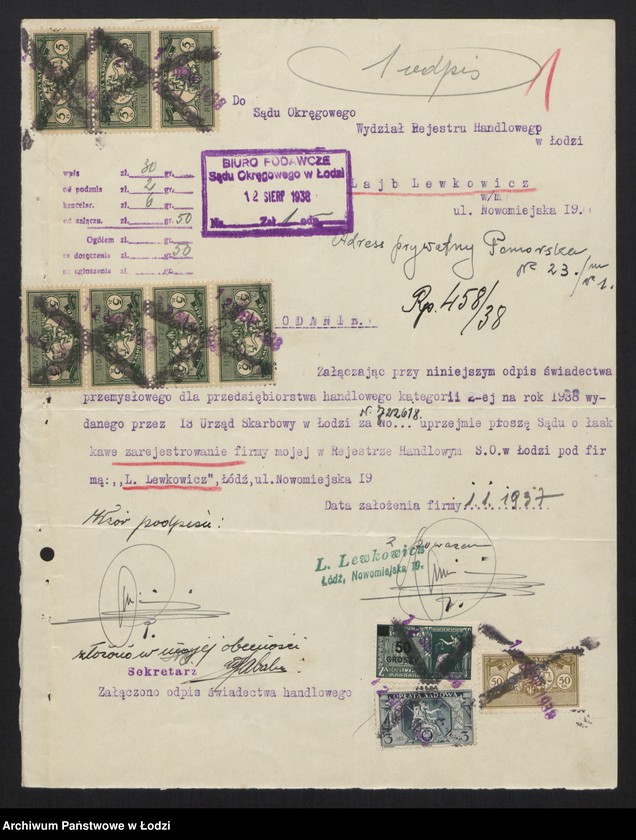 1 odpis
Do
Sądu Okręgowego
Wydział Rejestru Handlowego
w Łodzi
BIURO PODAWCZE
Sądu Okręgowego w Łodzi
12 SIERP 1938
Zał
Lajb Lewkowicz
w/m
ul. Nowomiejska 19.
wpis zł. 30 gr.
od podmis zł. 2 gr.
kancelar. zł. 6 gr.
od załącz. zł. gr. 50
Ogółem zł. gr.
za doręczenia zł. gr. 50
za ogłoszenia zł. gr.
Adress prywatny Pomorska
№ 23. /m
№ 1.
Rp. 458/38
ODANIE.
Załączając przy niniejszym odpis świadectwa
przemysłowego dla przedsiębiorstwa handlowego kategorii 2-ej na rok 1938 wy-
N. 722618.
danego przez 13 Urząd Skarbowy w Łodzi za No... uprzejmie płoszę Sądu o łask
kawe zarejestrowanie firmy mojej w Rejestrze Handlowym S.O.w Łodzi pod fir
mą:,,L. Lewkowicz",Łódź,ul.Nowomiejska 19
Data założenia firmy 1.1.1937
Wzór podpisu:
L. Lewkowicz
Łódź, Nowomiejska 19.
złożono w mojej obecności
Sekretarz
Załączono odpis świadectwa handlowego
50
GROSZY
OPŁATA SĄDOWA
3 3
50 50
Archiwum Państwowe w Łodzi